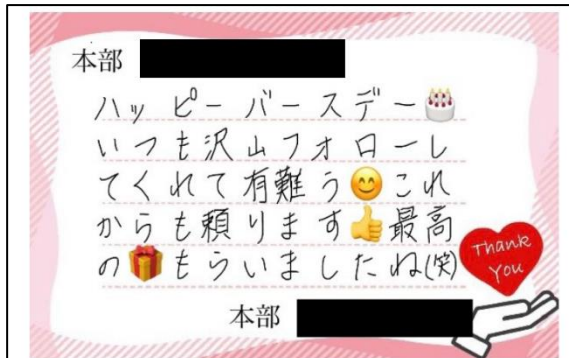 本部
ハッピーバースデー🎂
いつも沢山フォローし
てくれて有難う😊これ
からも頼ります👍最高
の🎁もらいましたね(笑)
Thank
You
本部